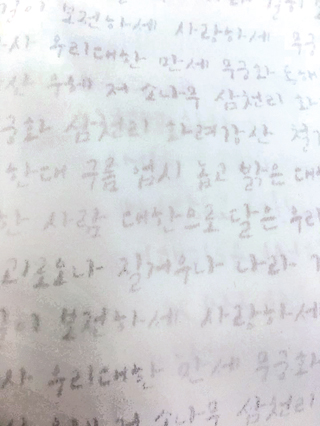 길이 보전하세 사랑하세 무궁
사 우리대한 만세 무궁화
산 저 소나무 삼천리 화
궁화 삼천리 화려강산 철
한대 구름 업시 놉고 밝은 대
한 사람 대한으로 달은 우리
괴로오나 질거우나 나라
길이 보전하세 사랑하세
사 우리대한 만세 무궁화
저 소나무 삼천리